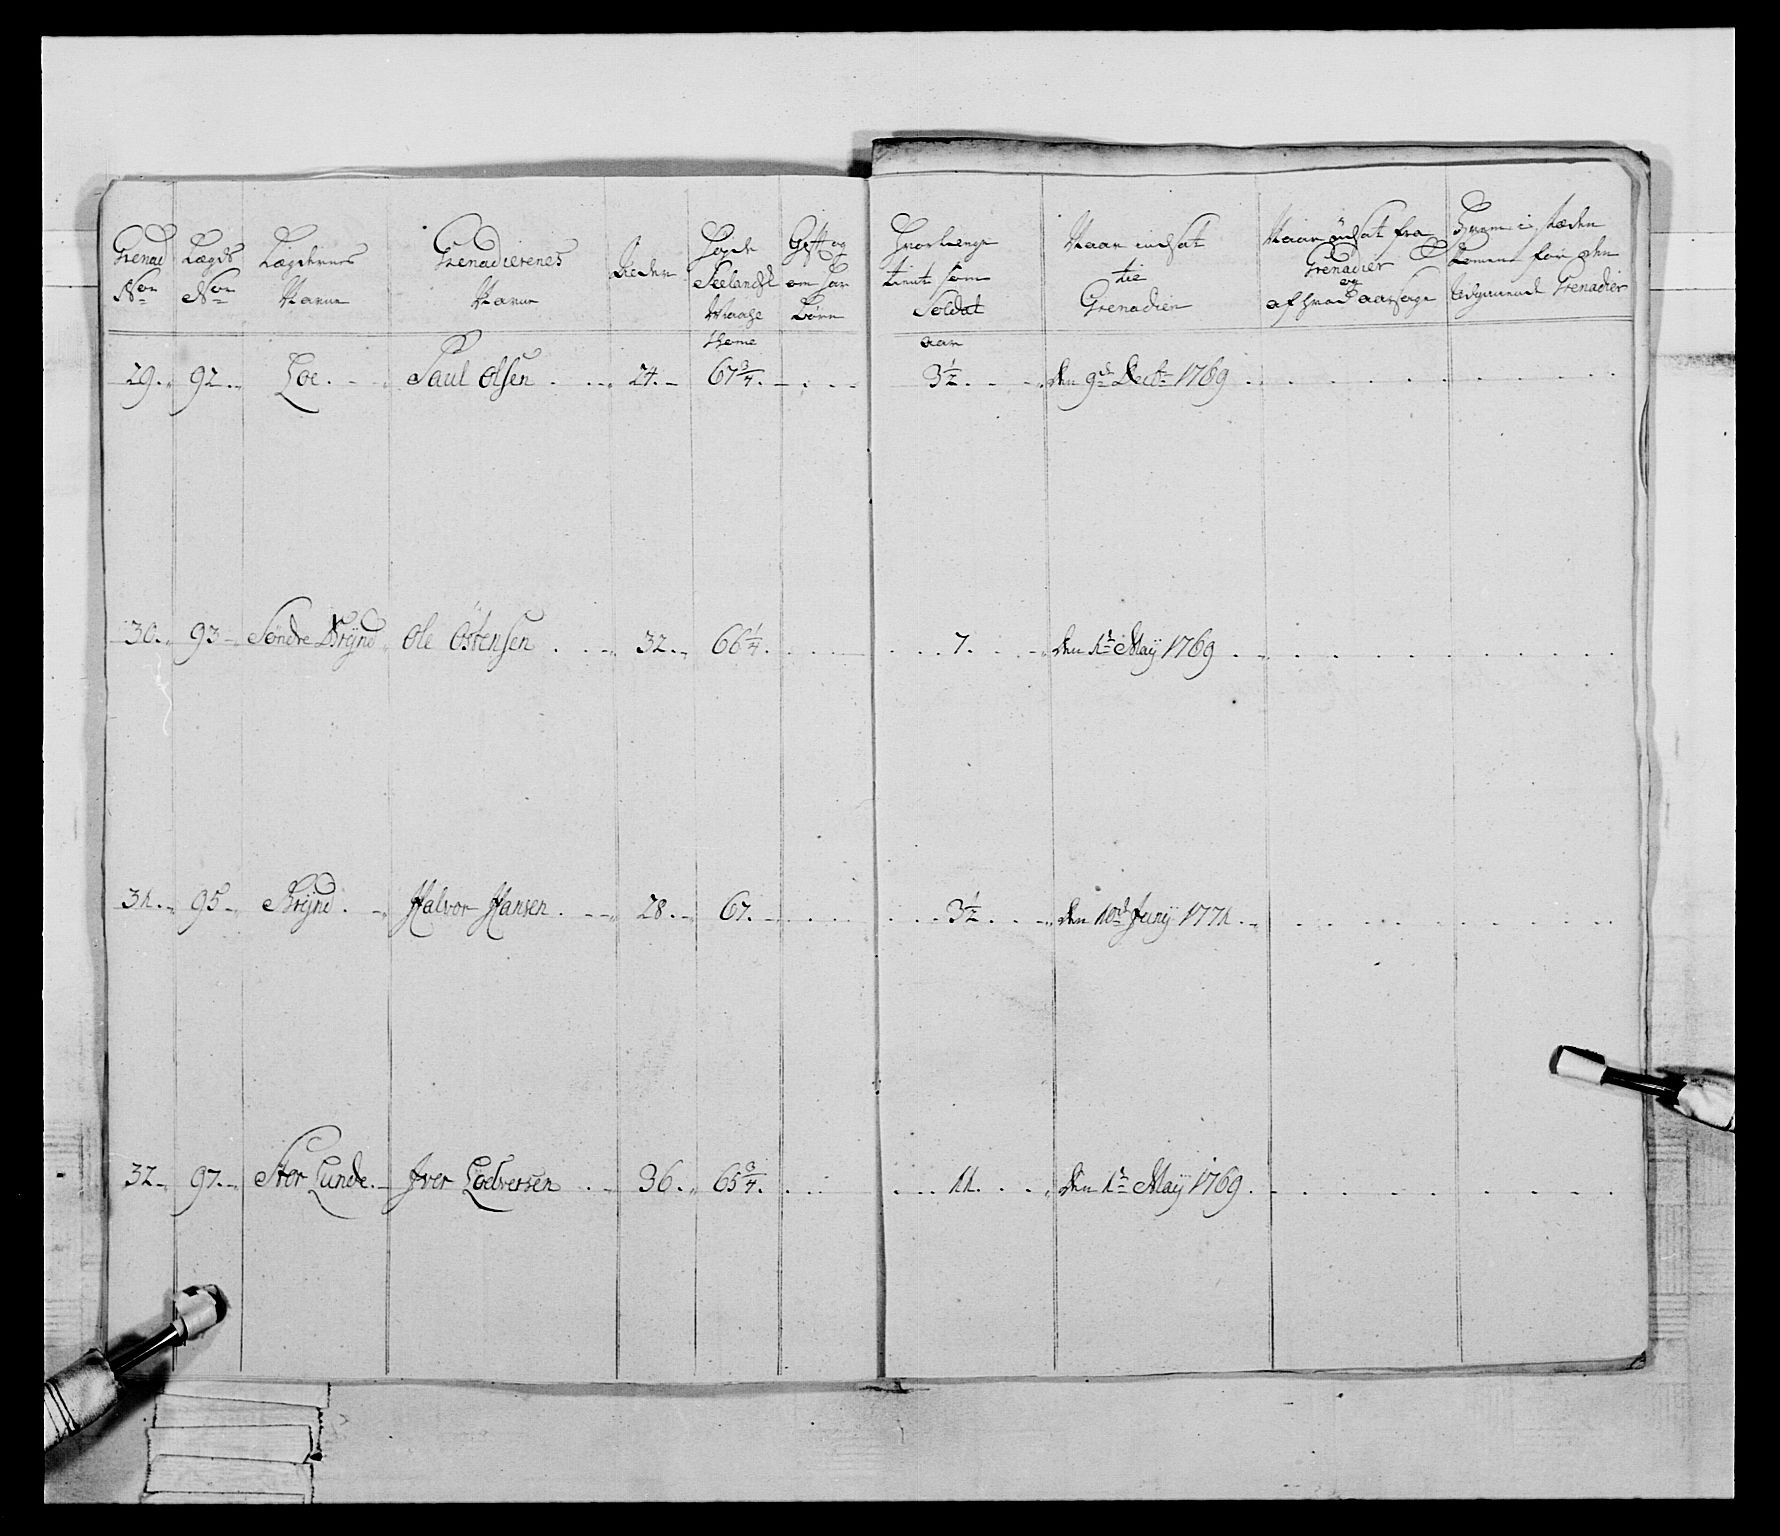 Grenad No
Lægds No
Lægdernes Navne
Grenadierenes Navne
Alder
Høyde Seelandsk Maale
Gift og om har Børn
Hvorlænge tient som Soldat
Naar indsat til Grenadier
Naar udsat fra Grenadier og af hvad aarsage
Hvem i stæden kommen for den Grenadier
tome
aar
29. 92. Loe. Paul Olsen. 24. 67 3/4. 3 1/2. den 9de Decbr 1769
30. 93 Søndre Brÿnd Ole Östensen. 32. 66 1/4. 7. den 1te Maÿ 1769
31. 95 Brÿnd. Halvor Hansen. 28. 67. 3 1/2. den 10de Junÿ 1771.
32. 97. Stor Lunde. Iver Lodversen. 36. 65 3/4. 11. den 1te Maÿ 1769.